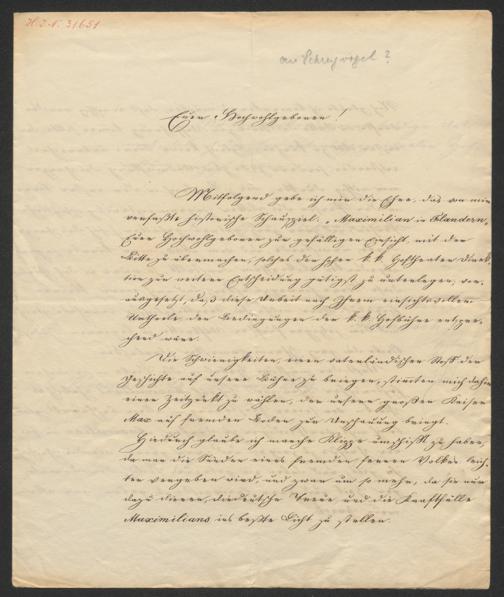 H.I.N. 31651
an Schreyvogel?
Euer Hochwohlgeboren!
Mitfolgend gebe ich mir die Ehre, das von mir
verfaßte historische Schauspiel: „Maximilian in Flandern"
Euer Hochwohlgeboren zur gefälligen Einsicht, mit der
Bitte zu übermachen, solches der hohen k. k. Hoftheater Direk-
tion zur weitern Entscheidung gütigst zu unterlegen, vor-
ausgesetzt, daß diese Arbeit nach Ihrem einsichtsvollen
Urtheile den Bedingungen der k. k. Hofbühne entspre-
chend wäre.
Die Schwierigkeiten, einen vaterländischen Stoff der
Geschichte auf unsere Bühne zu bringen, stimmten mich dahin
einen Zeitpunkt zu wählen, der unsern großen Kaiser
Max auf fremden Boden zur Anschauung bringt.
Hiedurch glaube ich manche Klippe umschifft zu haben,
da man die Sünden eines fremden fernen Volkes leich-
ter vergeben wird, und zwar um so mehr, da sie nur
dazu dienen, die deutsche Treue und die Kraftfülle
Maximilians ins beßte Licht zu stellen.